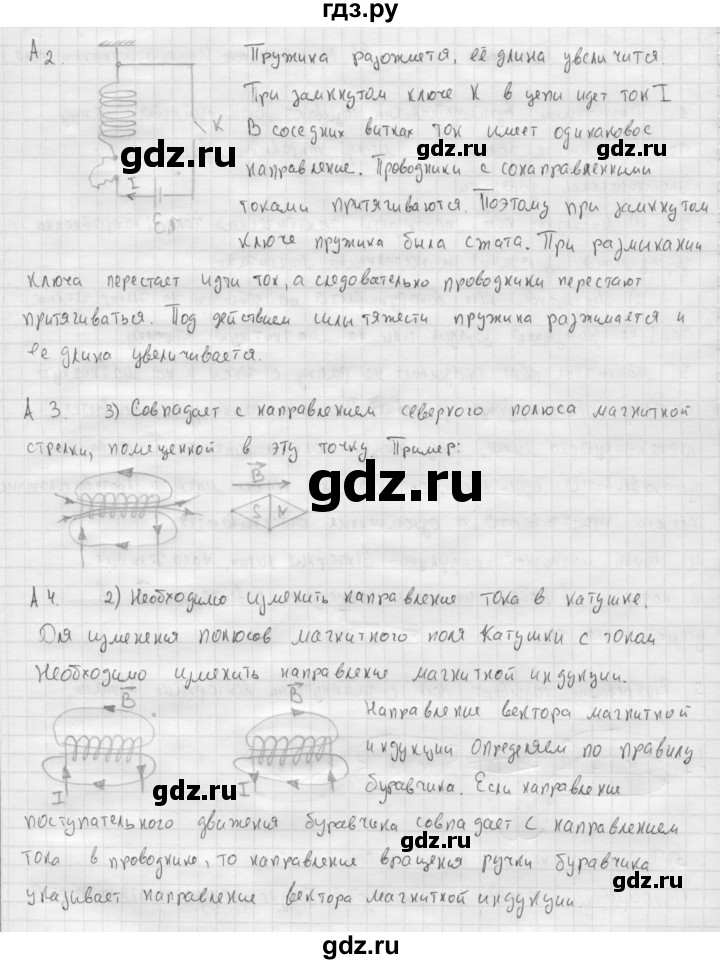 гдз.ру
А2. Пружина разожмется, её длина увеличится.
При замкнутом ключе К в цепи идет ток I
В соседних витках ток имеет одинаковое
направление. Проводники с сонаправленными
токами притягиваются. Поэтому при замкнутом
ключе пружина была сжата. При размыкании
ключа перестает идти ток, а следовательно проводники перестают
притягиваться. Под действием силы тяжести пружина разжимается и
ее длина увеличивается.
К
I
gdz.ru
А 3. 3) Совпадает с направлением северного полюса магнитной
стрелки, помещенной в эту точку. Пример:
B
S N
gdz.ru
gdz.ru
А 4. 2) Необходимо изменить направление тока в катушке.
Для изменения полюсов магнитного поля катушки с током
необходимо изменить направление магнитной индукции.
gdz.ru
B
B
I
I
Направление вектора магнитной
индукции определяем по правилу
буравчика. Если направление
gdz.ru
поступательного движения буравчика совпадает с направлением
тока в проводнике, то направление вращения ручки буравчика
указывает направление вектора магнитной индукции.
gdz.ru
gdz.ru
gdz.ru